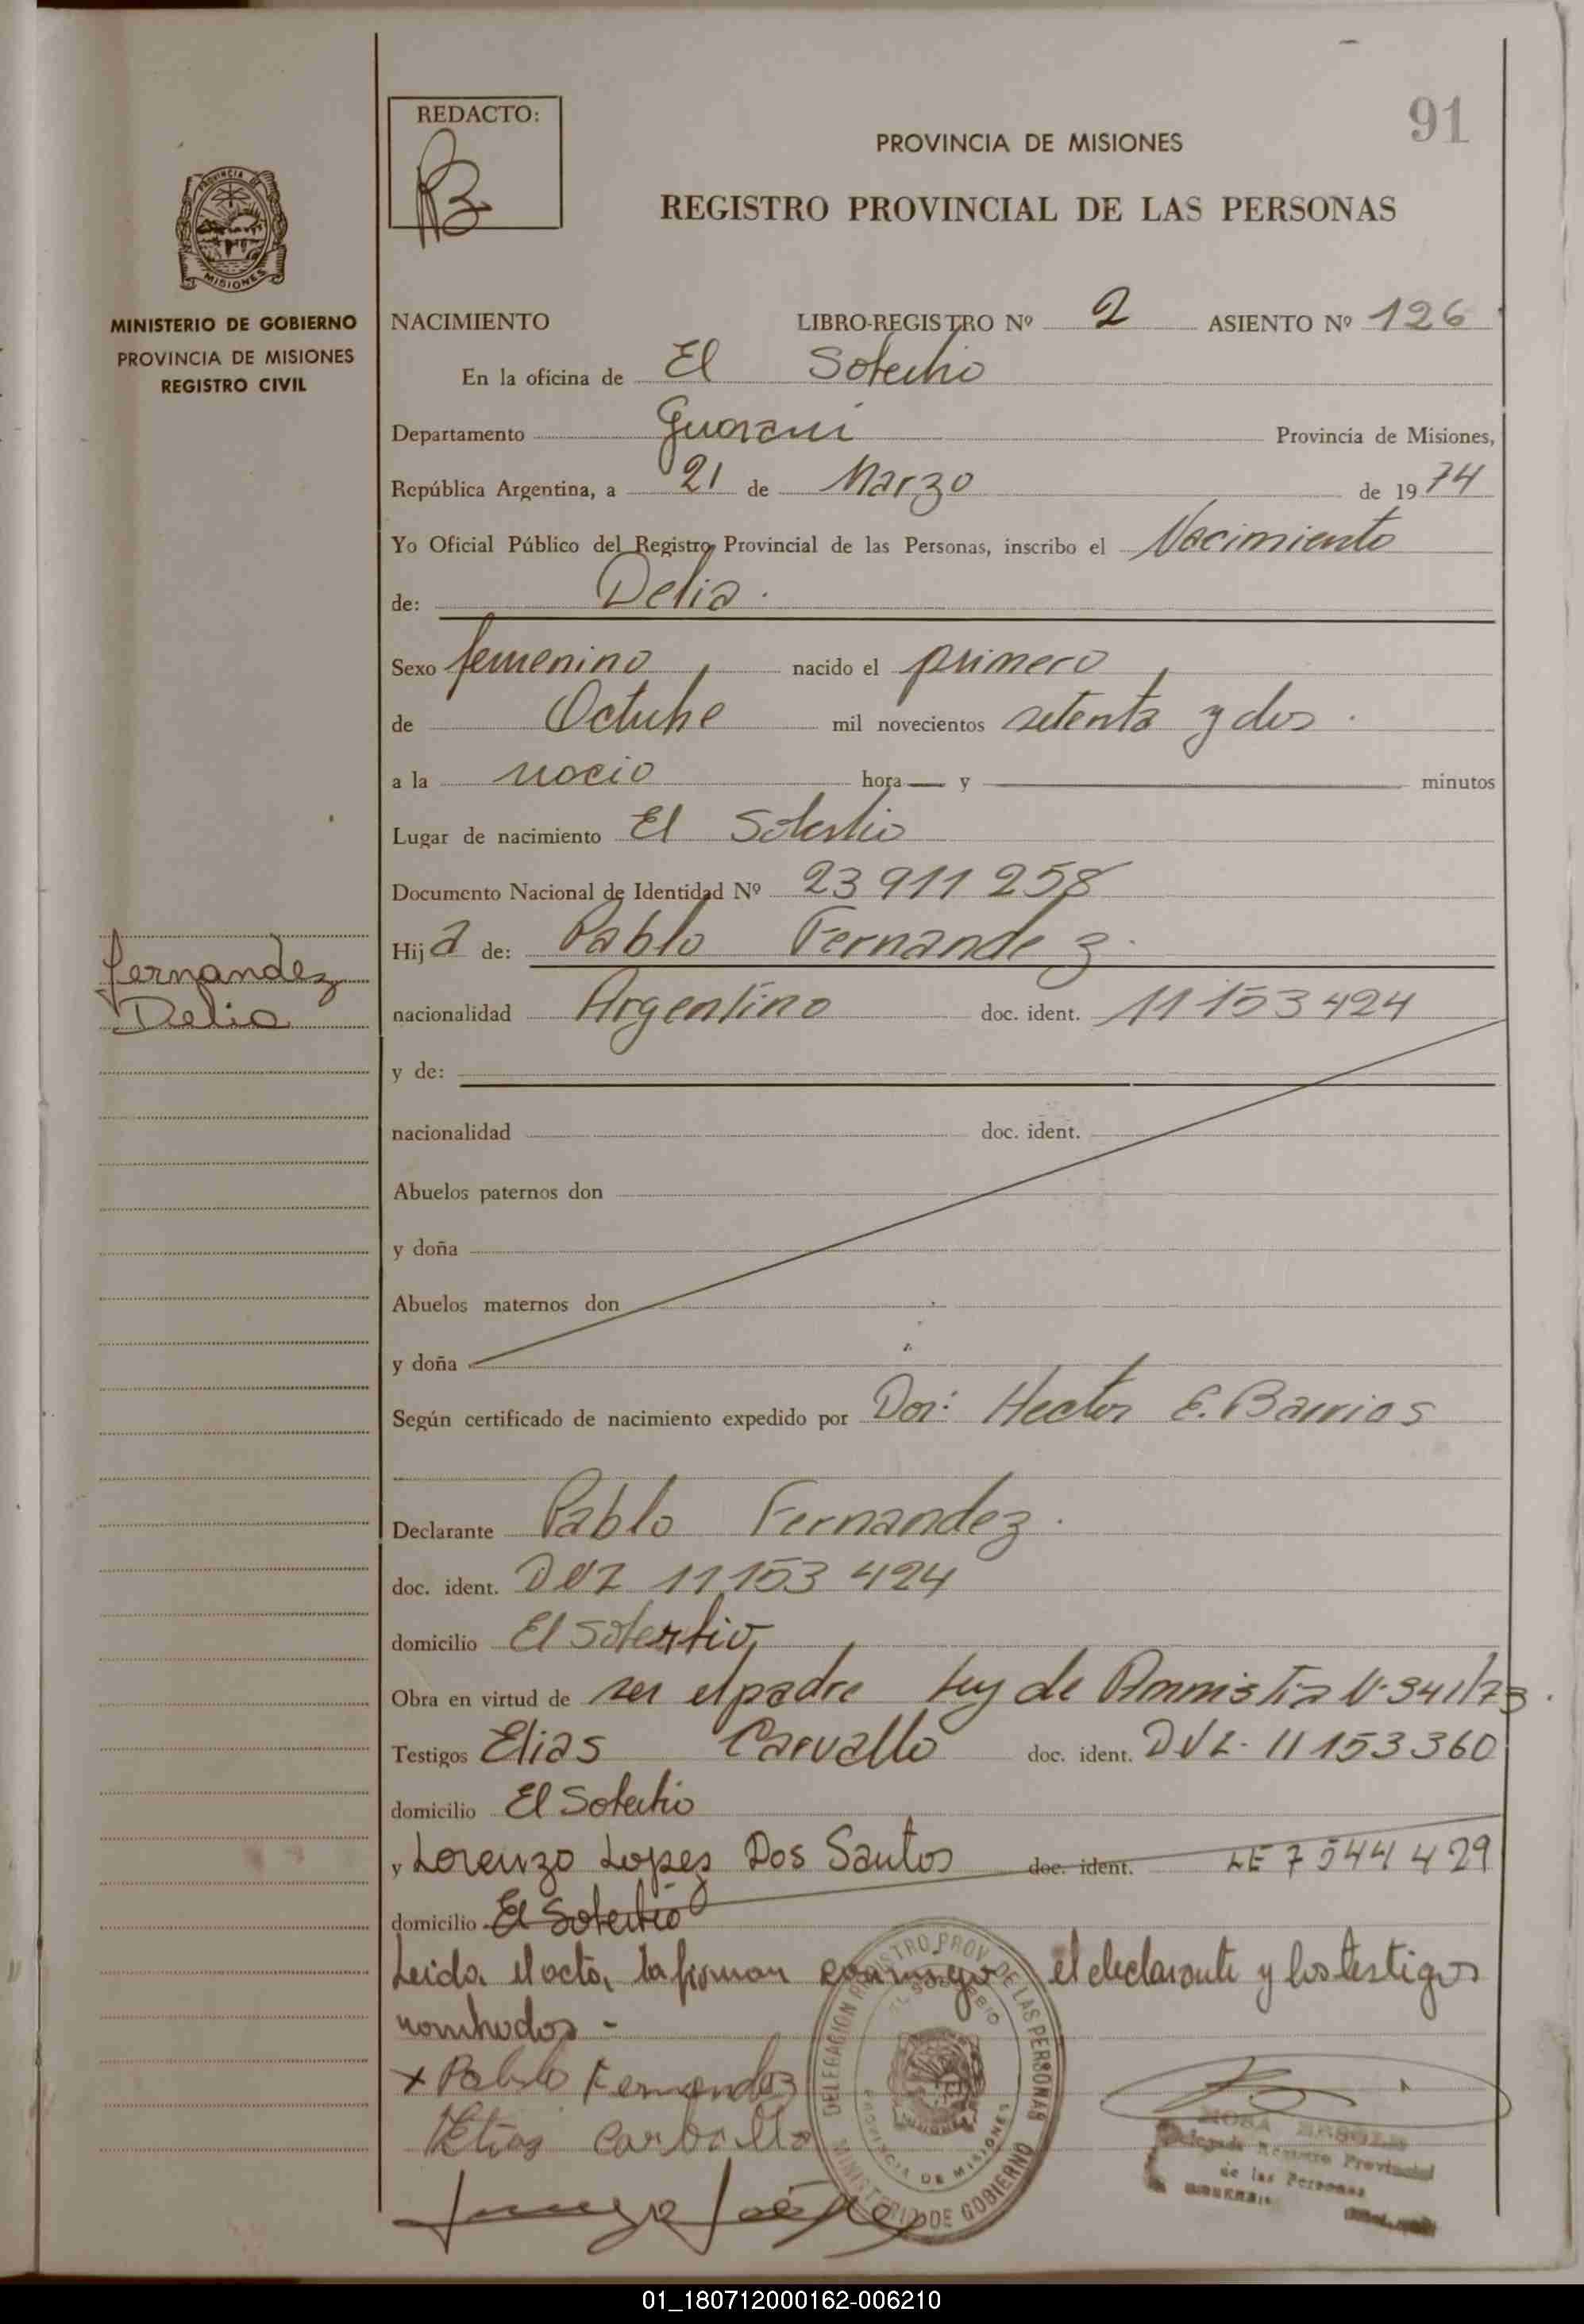 91
REDACTO:
PROVINCIA DE MISIONES
REGISTRO PROVINCIAL DE LAS PERSONAS
PROVINCIA DE
MISIONES
MINISTERIO DE GOBIERNO
PROVINCIA DE MISIONES
REGISTRO CIVIL
NACIMIENTO LIBRO-REGISTRO Nº 2 ASIENTO Nº 126
En la oficina de El Soberbio
Departamento Guarani Provincia de Misiones,
República Argentina, a 21 de Marzo de 1974
Yo Oficial Público del Registro Provincial de las Personas, inscribo el Nacimiento
de: Delia.
Sexo femenino nacido el primero
de Octubre mil novecientos setenta y dos.
a la hora — y minutos
Lugar de nacimiento El Soberbio
Documento Nacional de Identidad Nº 23 911 258
Hija de: Pablo Fernandez.
Fernandez
Delia
nacionalidad Argentino doc. ident. 11 153 424
y de:
nacionalidad doc. ident.
Abuelos paternos don
y doña
Abuelos maternos don
y doña
Según certificado de nacimiento expedido por Hector E. Barrios
Declarante Pablo Fernandez.
doc. ident. DNI 11 153 424
domicilio El Soberbio,
Obra en virtud de ser el padre Ley de Amnistia
Testigos Elias Carvallo doc. ident. DNI. 11 153 360
domicilio El Soberbio
y Lorenzo Lopes Dos Santos doc. ident. LE 7 544 429
domicilio El Soberbio
Leida el acta, la firman conmigo el declarante y los testigos
nombrados -
x Pablo Fernandez
Elias Carballo
DELEGACION REGISTRO PROV. DE LAS PERSONAS
EL SOBERBIO
PROVINCIA DE MISIONES
MINISTERIO DE GOBIERNO
Delegada Registro Provincial
de las Personas
01_180712000162-006210